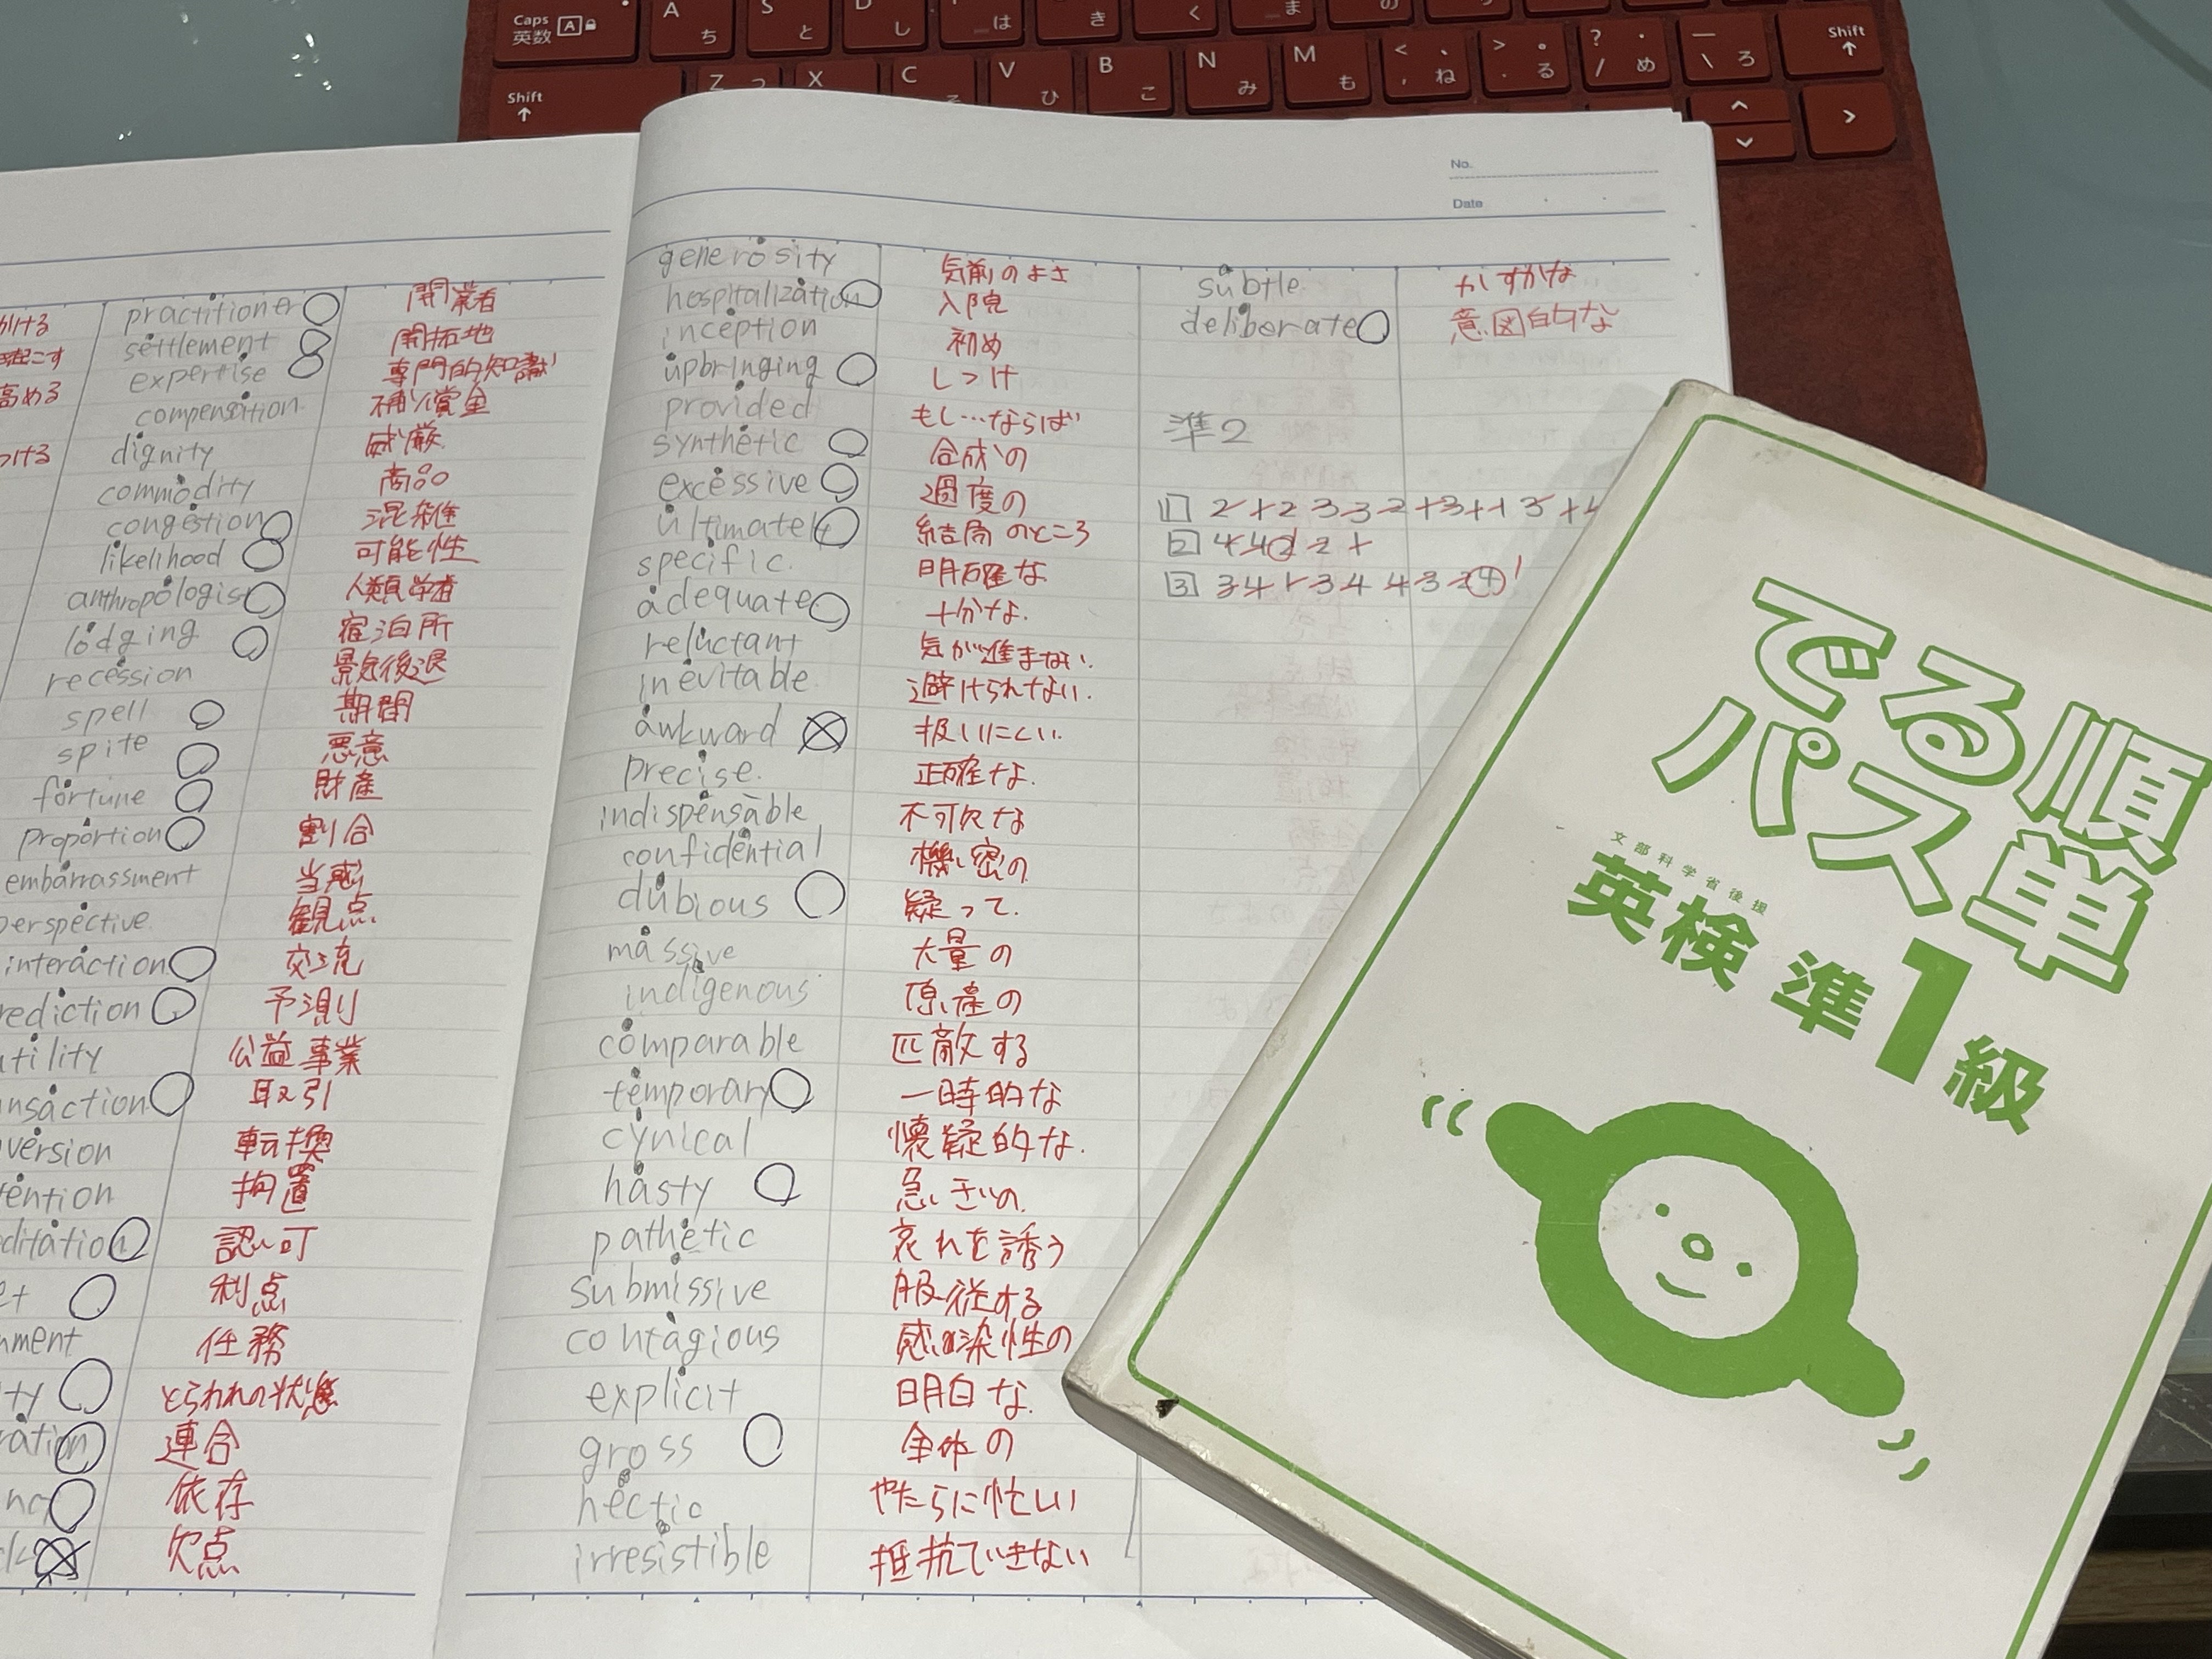 Caps
英数
A
ち
S
と
D
し
は
き
く
ま
の
Shift
Z
つ
X
C
そ
V
ひ
B
こ
N
み
M
も
<
、
,
ね
>
。
.
る
?
・
/
め
\
ろ
Shift
かける
高める
つける
practitioner 開業者
settlement 開拓地
expertise 専門的知識
compensation 補償金
dignity 威厳
commodity 商品
congestion 混雑
likelihood 可能性
anthropologist 人類学者
lodging 宿泊所
recession 景気後退
spell 期間
spite 悪意
fortune 財産
proportion 割合
embarrassment 当惑
perspective 観点
interaction 交流
rediction 予測
tility 公益事業
nsaction 取引
version 転換
tention 拘置
ditation 認可
et 利点
nment 任務
ty とらわれの状態
ration 連合
ncy 依存
欠点
No.
Date
generosity 気前のよさ
hospitalization 入院
inception 初め
upbringing しつけ
provided もし…ならば
synthetic 合成の
excessive 過度の
ultimately 結局のところ
specific. 明確な
adequate 十分な.
reluctant 気が進まない.
inevitable 避けられない.
awkward 扱いにくい.
precise. 正確な.
indispensable 不可欠な
confidential 機密の
dubious 疑って.
massive 大量の
indigenous 原産の
comparable 匹敵する
temporary 一時的な
cynical 懐疑的な.
hasty 急ぎの.
pathetic 哀れを誘う
submissive 服従する
contagious 感染性の
explicit 明白な.
gross 全体の
hectic やたらに忙しい
irresistible 抵抗できない
subtle かすかな
deliberate 意図的な
準2
1
2
3
でる順
パス単
文部科学省後援
英検 準1級